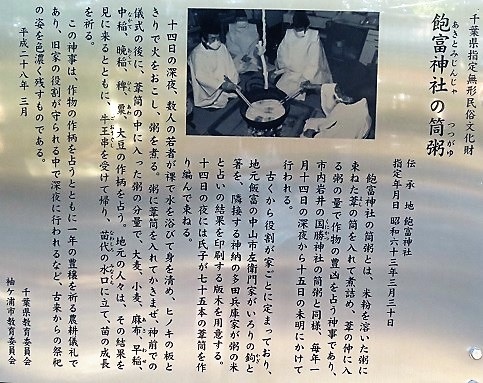 千葉県指定無形民俗文化財
飽富神社の筒粥
あきとみじんじゃ つつがゆ
伝承地 飽富神社
指定年月日 昭和六十三年三月三十日
飽富神社の筒粥とは、米粉を溶いた粥に
束ねた葦の筒を入れて煮詰め、葦の中に入
る粥の量で作物の豊凶を占う神事であり、
市内岩井の国勝神社の筒粥と同様、毎年一
月十四日の深夜から十五日の未明にかけて
行われる。
古くから役割が家ごとに定まっており、
地元飯富の中山市左衛門家がいろりの鉤と
箸を、隣接する神納の多田兵庫家が粥の米
と占いの結果を印刷する版木を用意する。
十四日の夜には氏子が七十五本の葦筒を作
り編んで束ねる。
十四日の深夜、数人の若者が裸で水を浴びて身を清め、ヒノキの板と
きりで火をおこし、粥を煮る。粥に葦筒を入れてかきまぜ、神前での
儀式の後に、葦筒の中に入った粥の分量で、大麦、小麦、麻布、早稲、
中稲、晩稲、稗、粟、大豆の作柄を占う。地元の人々は、その結果を
見に来るとともに、牛王串を受けて帰り、苗代の水口に立て、苗の成長
を祈る。
この神事は、作物の作柄を占うとともに一年の豊穣を祈る農耕儀礼で
あり、旧家の役割が守られる中で深夜に行われるなど、古来からの祭祀
の姿を色濃く残すものである。
平成二十八年三月
千葉県教育委員会
袖ケ浦市教育委員会